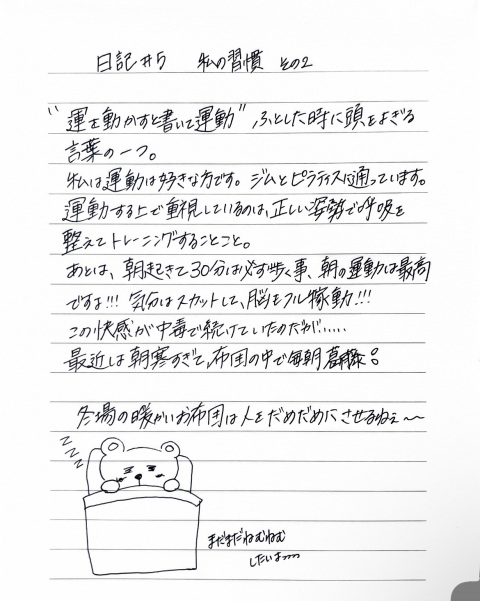 日記#5 私の習慣 その2
"運を動かすと書いて運動"、ふとした時に頭をよぎる
言葉の一つ。
私は運動は好きな方です。ジムとピラティスに通っています。
運動する上で重視しているのは、正しい姿勢で呼吸を
整えてトレーニングすることこと。
あとは、朝起きて30分は必ず歩く事、朝の運動は最高
ですよ!!! 気分はスカットして、脳もフル稼動!!!
この快感が中毒で続けていたのだが……
最近は朝寒すぎて、布団の中で毎朝葛藤。
冬場の暖かいお布団は人をだめだめにさせるねぇ〜
zzz
まだまだねむねむ
したいよ